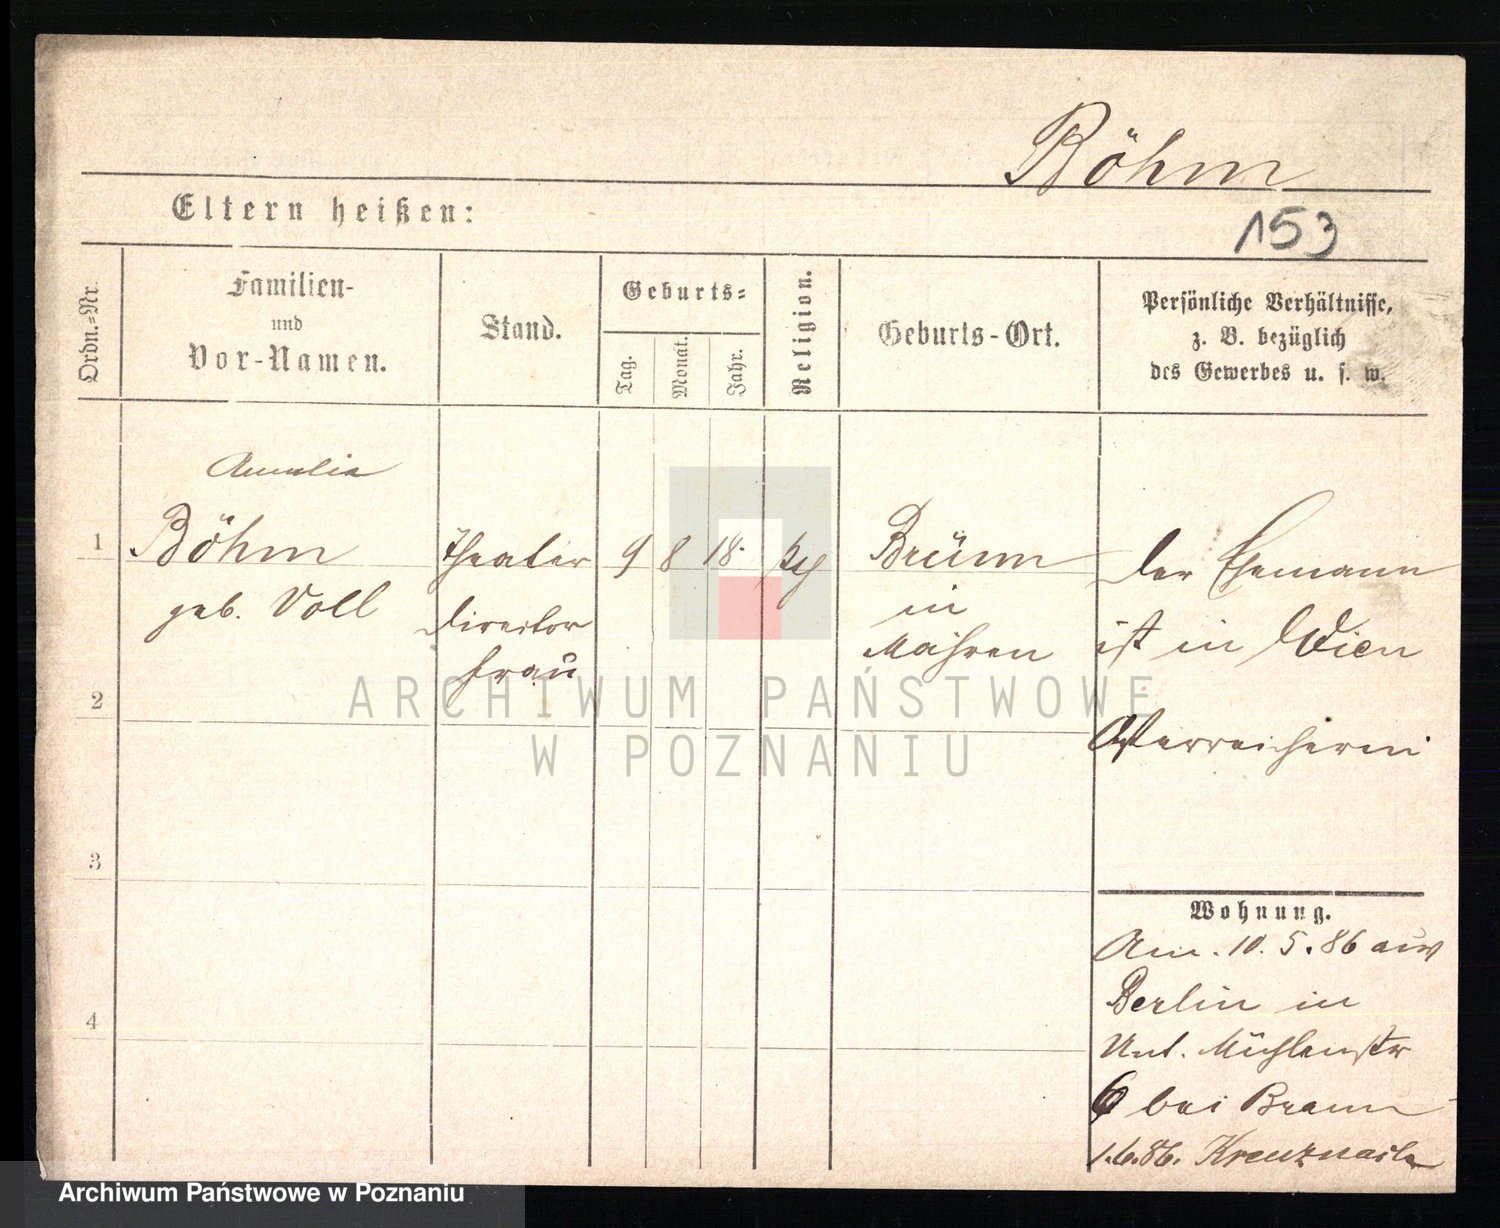 Böhm
Eltern heißen:
153
Ordn.-Nr.
Familien-
und
Vor-Namen.
Stand.
Geburts-
Tag.
Monat.
Jahr.
Religion.
Geburts-Ort.
Persönliche Verhältnisse,
z. B. bezüglich
des Gewerbes u. s. w.
Amalia
1 Böhm Theater 9 8 18. Brünn Der Ehemann
geb. Voll Director in ist in Wien
Frau Mähren
2
Österreicherin
ARCHIWUM PAŃSTWOWE
W POZNANIU
3
Wohnung.
Am. 10. 5. 86 aus
Berlin in
4
Unt. Mühlenstr
6 bei Braun
1.6.86. Kreuznach
Archiwum Państwowe w Poznaniu